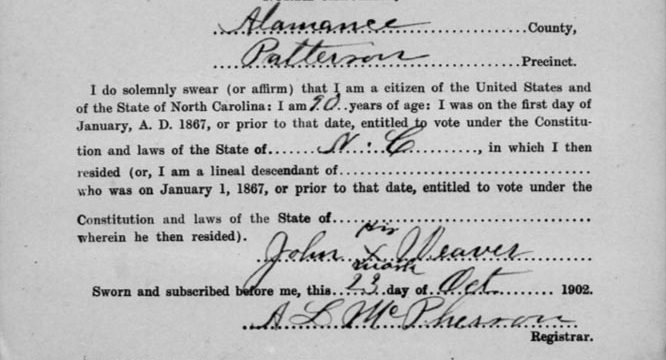 Alamance County,
Patterson Precinct.
I do solemnly swear (or affirm) that I am a citizen of the United States and
of the State of North Carolina: I am 90 years of age: I was on the first day of
January, A. D. 1867, or prior to that date, entitled to vote under the Constitu-
tion and laws of the State of N. C, in which I then
resided (or, I am a lineal descendant of
who was on January 1, 1867, or prior to that date, entitled to vote under the
Constitution and laws of the State of
wherein he then resided).
His
John X Weaver
mark
Sworn and subscribed before me, this 23 day of Oct 1902.
A L McPherson
Registrar.